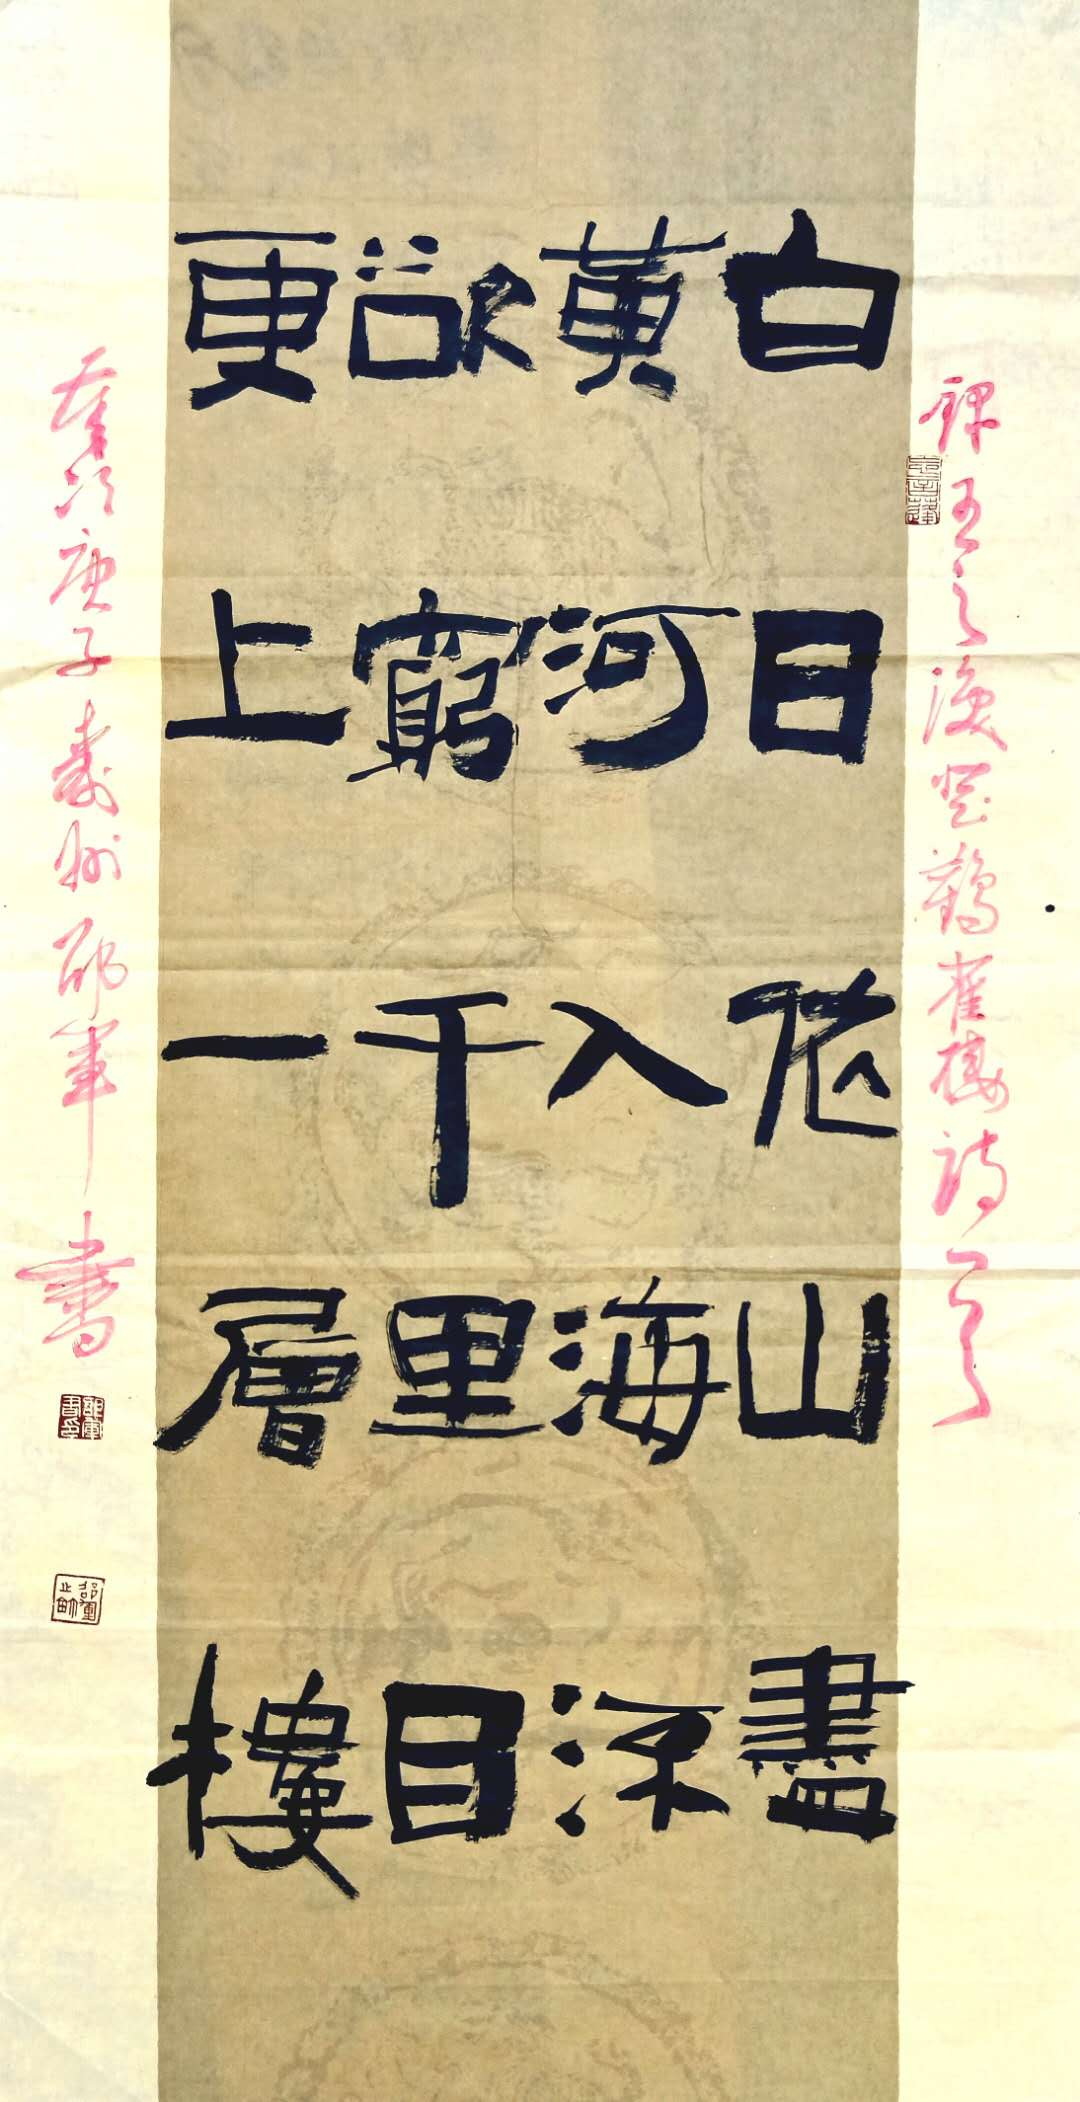 録王之渙登鸛雀樓詩
白日依山盡
黃河入海流
欲窮千里目
更上一層樓
歲次庚子壽州邵軍書